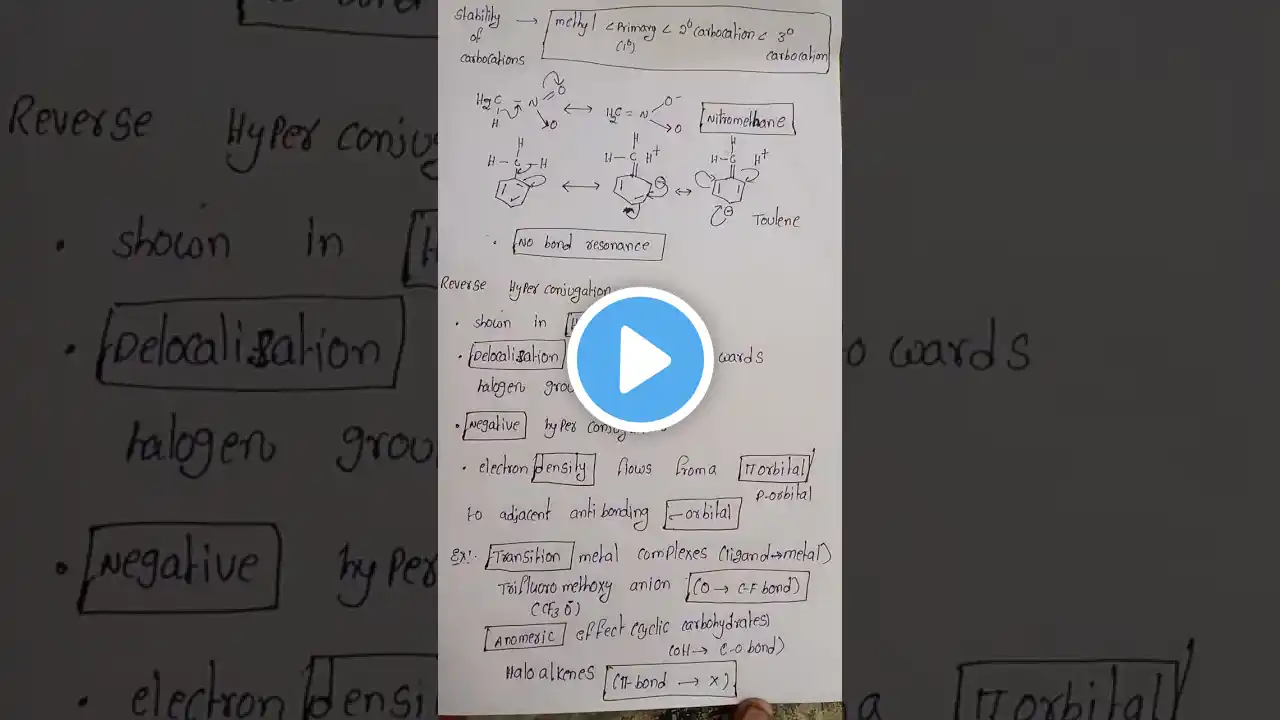 stability → methyl < Primary < 2° carbocation < 3°
of (1°) carbocation
carbocations
H2C - N = O ↔ H2C = N O⁻
H O O
Nitromethane
H H H
H - C - H H - C H+ H - C H+
↔ ⊖ ↔ ⊖
Toulene
• No bond resonance
Reverse Hyper conjugation
• shown in
• Delocalisation wards
halogen
• Negative hyper
• electron density flows from a π orbital/
p-orbital
to adjacent antibonding -orbital
Ex:- Transition metal complexes (ligand→metal)
Trifluoro methoxy anion (O → C-F bond)
(CF3O⁻)
Anomeric effect (cyclic carbohydrates)
(OH → C-O bond)
Halo alkenes (π-bond → X)
Reverse Hyper
• shown in
• Delocalisation wards
halogen
• Negative hyper
• electron π orbital